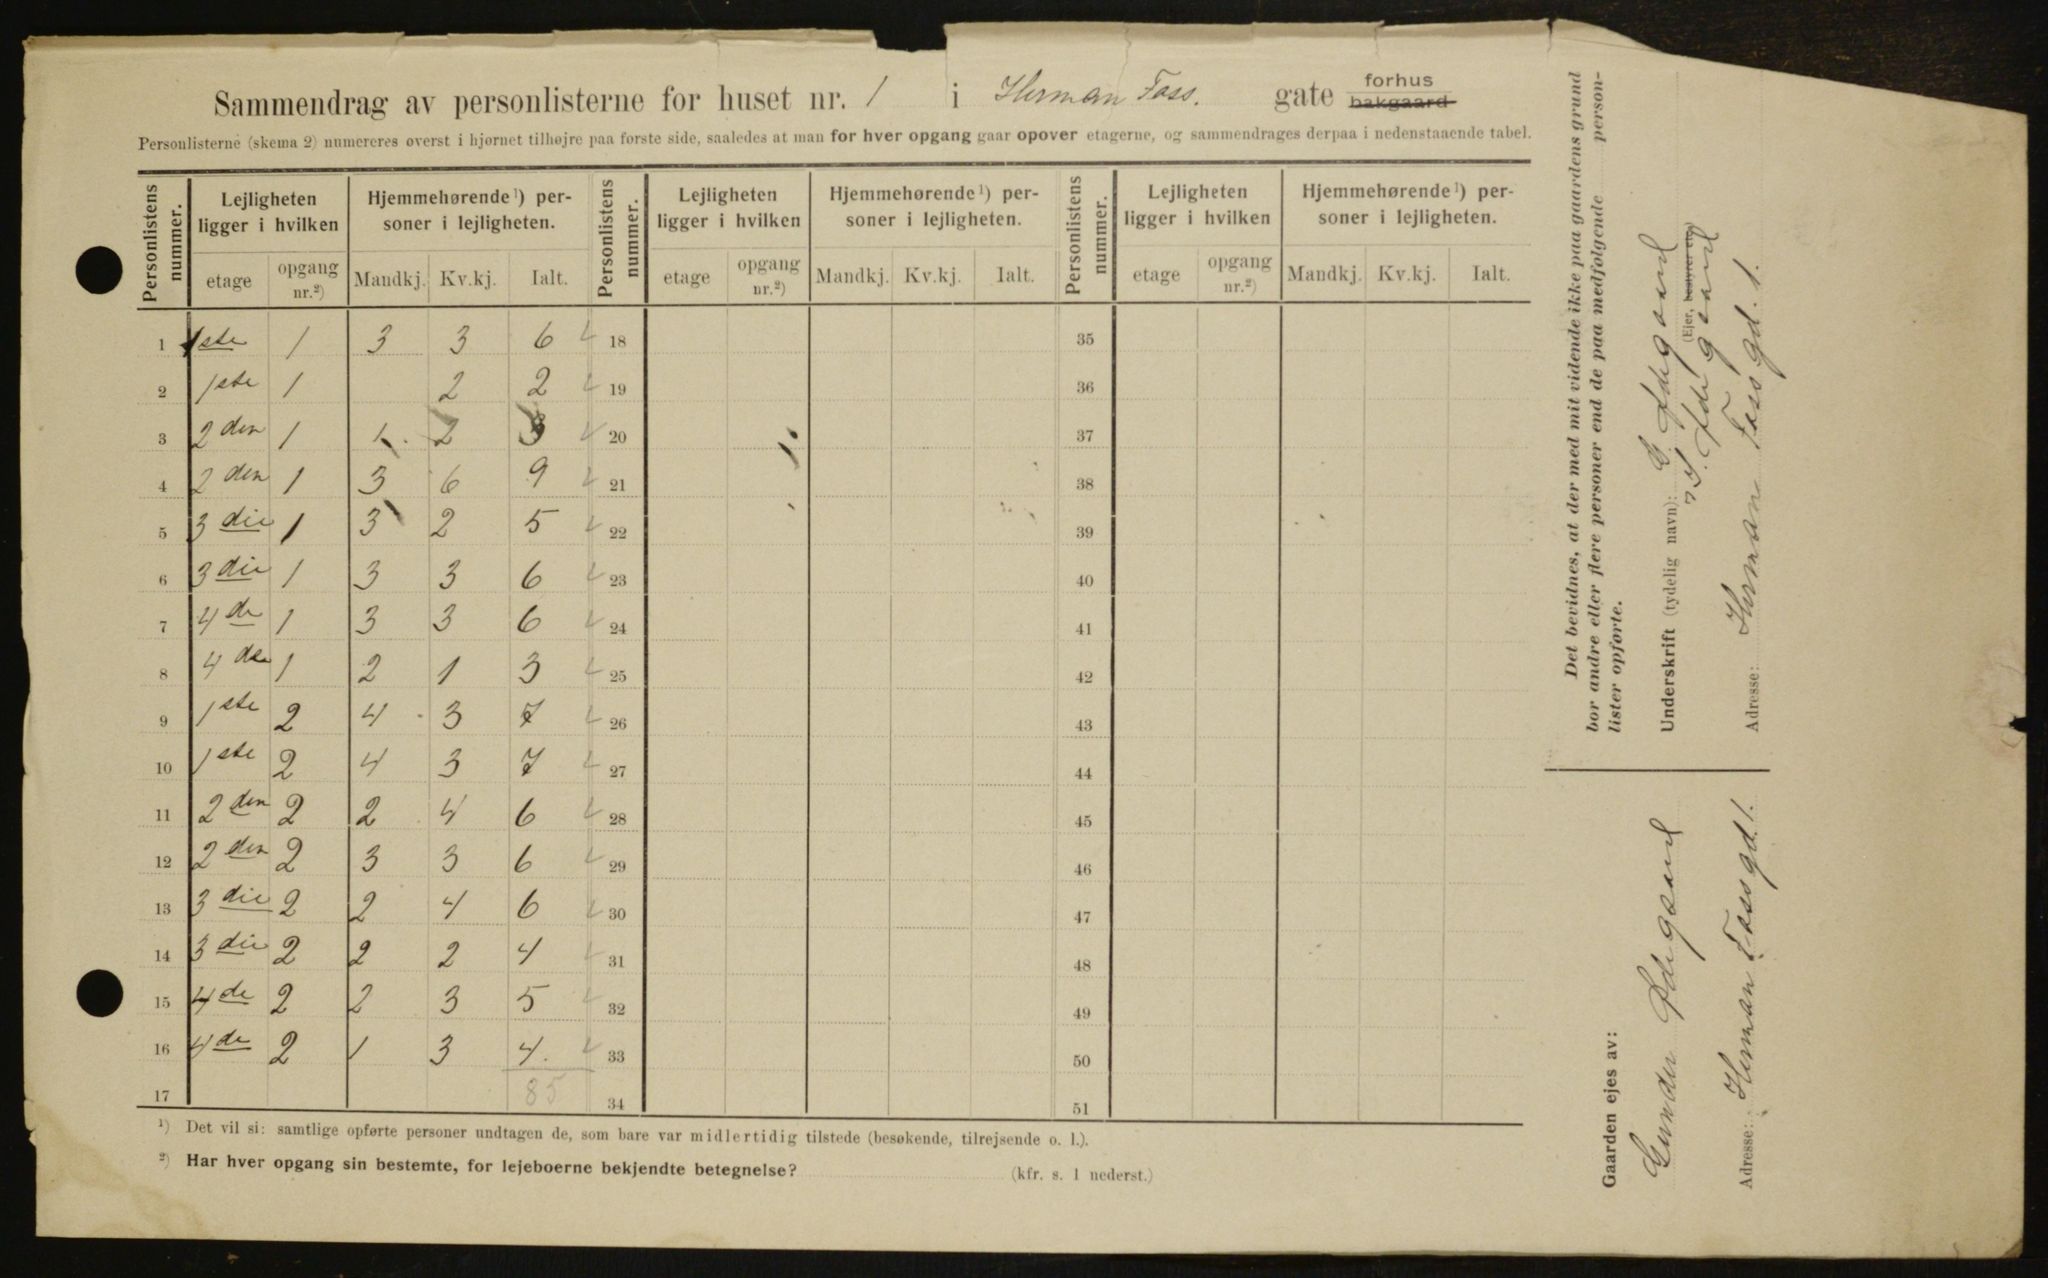 Sammendrag av personlisterne for huset nr. 1 i Herman Foss. gate forhus bakgaard
Personlisterne (skema 2) numereres øverst i hjørnet tilhøjre paa første side, saaledes at man for hver opgang gaar opover etagerne, og sammendrages derpaa i nedenstaaende tabel.
Personlistens nummer. Lejligheten ligger i hvilken Hjemmehørende¹) personer i lejligheten. Personlistens nummer. Lejligheten ligger i hvilken Hjemmehørende¹) personer i lejligheten. Personlistens nummer. Lejligheten ligger i hvilken Hjemmehørende¹) personer i lejligheten.
etage opgang nr.²) Mandkj. Kv.kj. Ialt. etage opgang nr.²) Mandkj. Kv.kj. Ialt. etage opgang nr.²) Mandkj. Kv.kj. Ialt.
1 1ste 1 3 3 6 18 35
2 1ste 1 2 2 19 36
3 2den 1 1 2 3 20 37
4 2den 1 3 6 9 21 38
5 3die 1 3 2 5 22 39
6 3die 1 3 3 6 23 40
7 4de 1 3 3 6 24 41
8 4de 1 2 1 3 25 42
9 1ste 2 4 3 7 26 43
10 1ste 2 4 3 7 27 44
11 2den 2 2 4 6 28 45
12 2den 2 3 3 6 29 46
13 3die 2 2 4 6 30 47
14 3die 2 2 2 4 31 48
15 4de 2 2 3 5 32 49
16 4de 2 1 3 4. 33 50
17 85 34 51
¹) Det vil si: samtlige opførte personer undtagen de, som bare var midlertidig tilstede (besøkende, tilrejsende o. l.).
²) Har hver opgang sin bestemte, for lejeboerne bekjendte betegnelse? (kfr. s. 1 nederst.)
Det bevidnes, at der med mit vidende ikke paa gaardens grund
bor andre eller flere personer end de paa medfølgende personlister opførte.
Underskrift (tydelig navn): G.
(Ejer, bestyrer etc.)
Adresse: Herman Foss gd. 1.
Gaarden ejes av:
Gunder
Adresse: Herman Foss gd. 1.